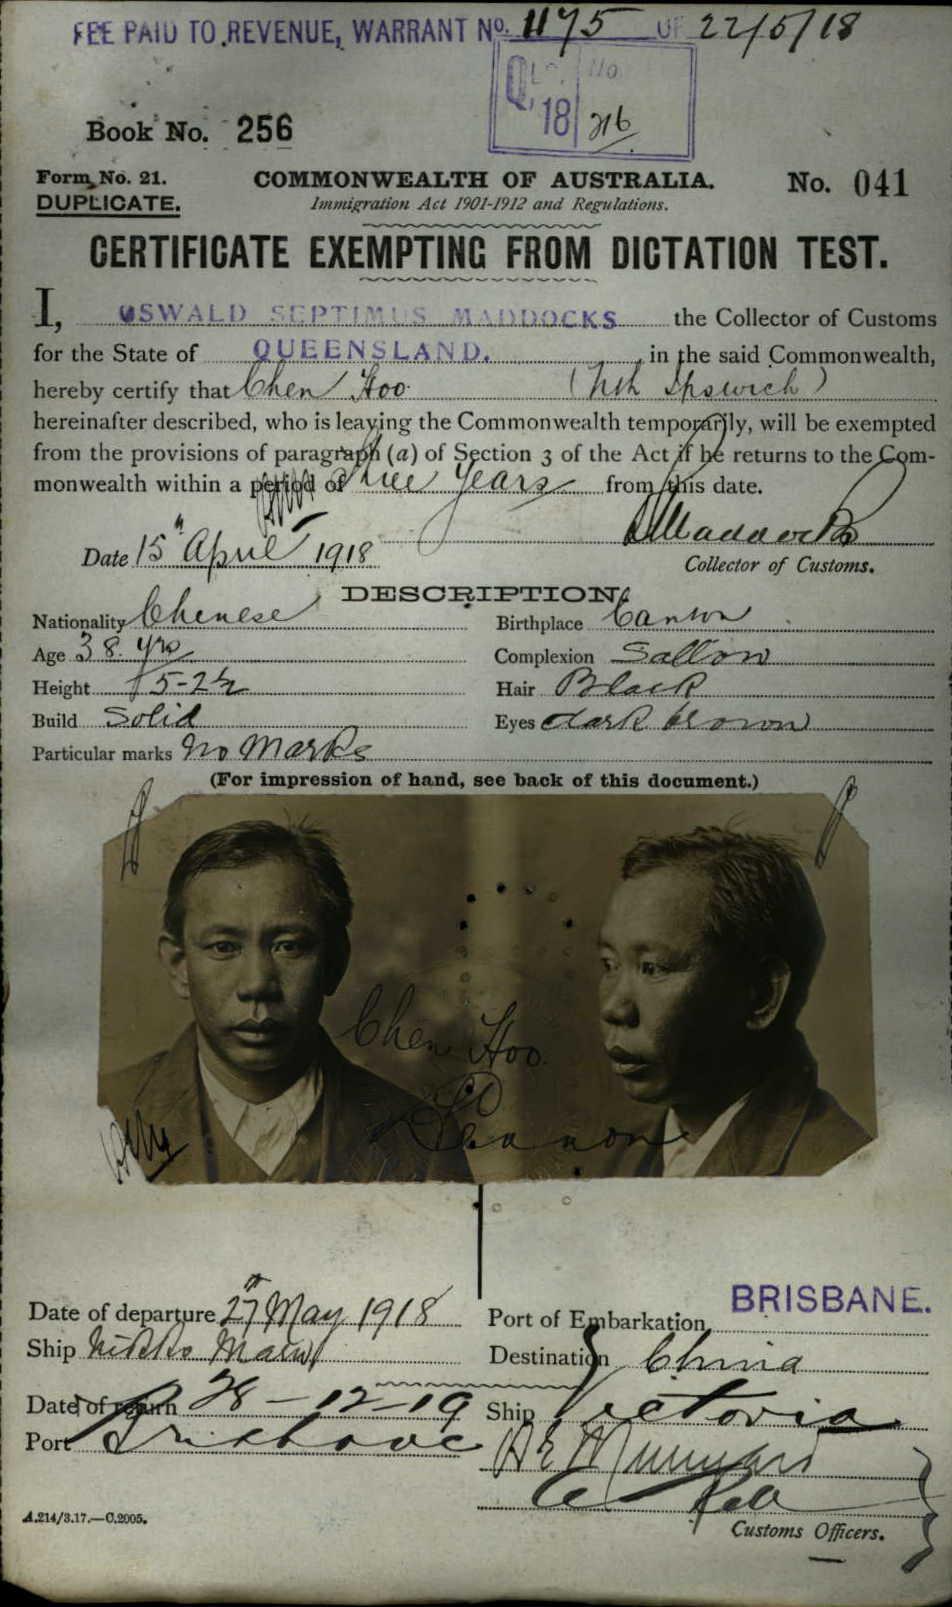 FEE PAID TO REVENUE, WARRANT No. 1175 OF 22/5/18
No
Q. 18 216
Book No. 256
Form No. 21. COMMONWEALTH OF AUSTRALIA. No. 041
DUPLICATE. Immigration Act 1901-1912 and Regulations.
CERTIFICATE EXEMPTING FROM DICTATION TEST.
I, OSWALD SEPTIMUS MADDOCKS the Collector of Customs
for the State of QUEENSLAND. in the said Commonwealth,
hereby certify that Chen Hoo (Nth Ipswich)
hereinafter described, who is leaving the Commonwealth temporarily, will be exempted
from the provisions of paragraph (a) of Section 3 of the Act if he returns to the Com-
monwealth within a period of three years from this date.
Maddocks
Date 15th April 1918 Collector of Customs.
DESCRIPTION.
Nationality Chinese Birthplace Canton
Age 38 yrs Complexion Sallow
Height 5-2½ Hair Black
Build Solid Eyes dark brown
Particular marks No Marks
(For impression of hand, see back of this document.)
Chen Hoo
BRISBANE.
Date of departure 27th May 1918 Port of Embarkation
Ship Nikko Maru Destination China
Date of return 28-12-19 Ship Victoria
Port Brisbane
A.214/3.17.—C.2005. Customs Officers.